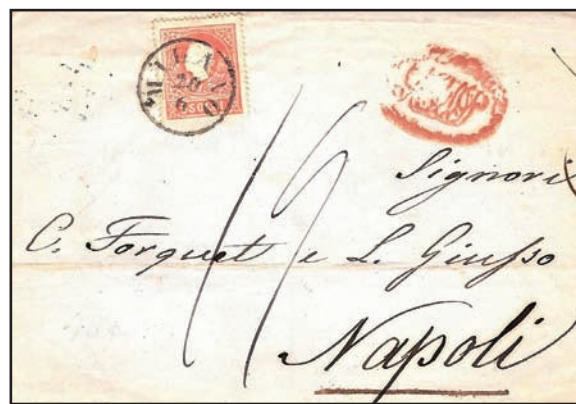 MILANO
20
6
SOL
19
Signori
C. Forquet e L. Giusso
Napoli